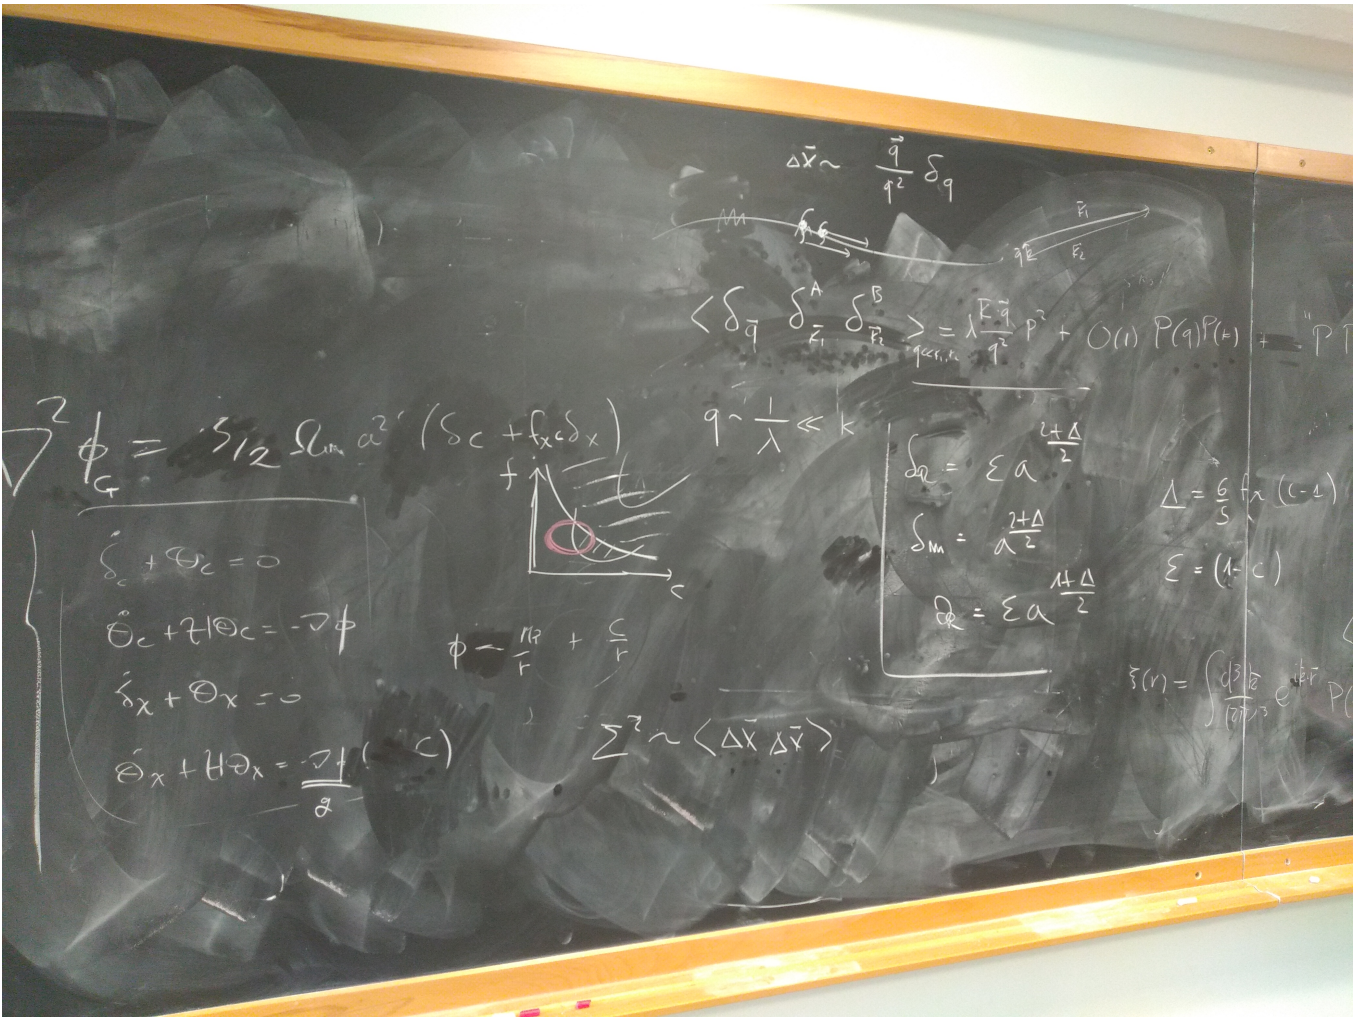 Δx⃗ ~ q⃗/q² δ_q
k⃗₁
k⃗₂
<δ_q⃗ δ^A_k⃗₁ δ^B_k⃗₂>_q≪k₁,k₂ = λ k⃗ q⃗/q² P² + O(1) P(q)P(k) + "P P
∇²ϕ_G = 3/2 Ω_m a² (δ_c + f_x c δ_x)
q ~ 1/λ ≪ k
f
c
δ_r = ε a^(2+Δ)/2
δ_m = a^(2+Δ)/2
θ_r = ε a^(1+Δ)/2
Δ = 6/5 f_x (c-1)
ε = (1-c)
δ̇_c + θ_c = 0
θ̇_c + Hθ_c = -∇ϕ
δ̇_x + θ_x = 0
θ̇_x + Hθ_x = -∇ϕ ( c)
2
ϕ ~ m/r + c/r
Σ² ~ <Δx⃗ Δx⃗>
ξ(r) = ∫ d³k/(2π)³ e^ik⃗·r⃗ P(